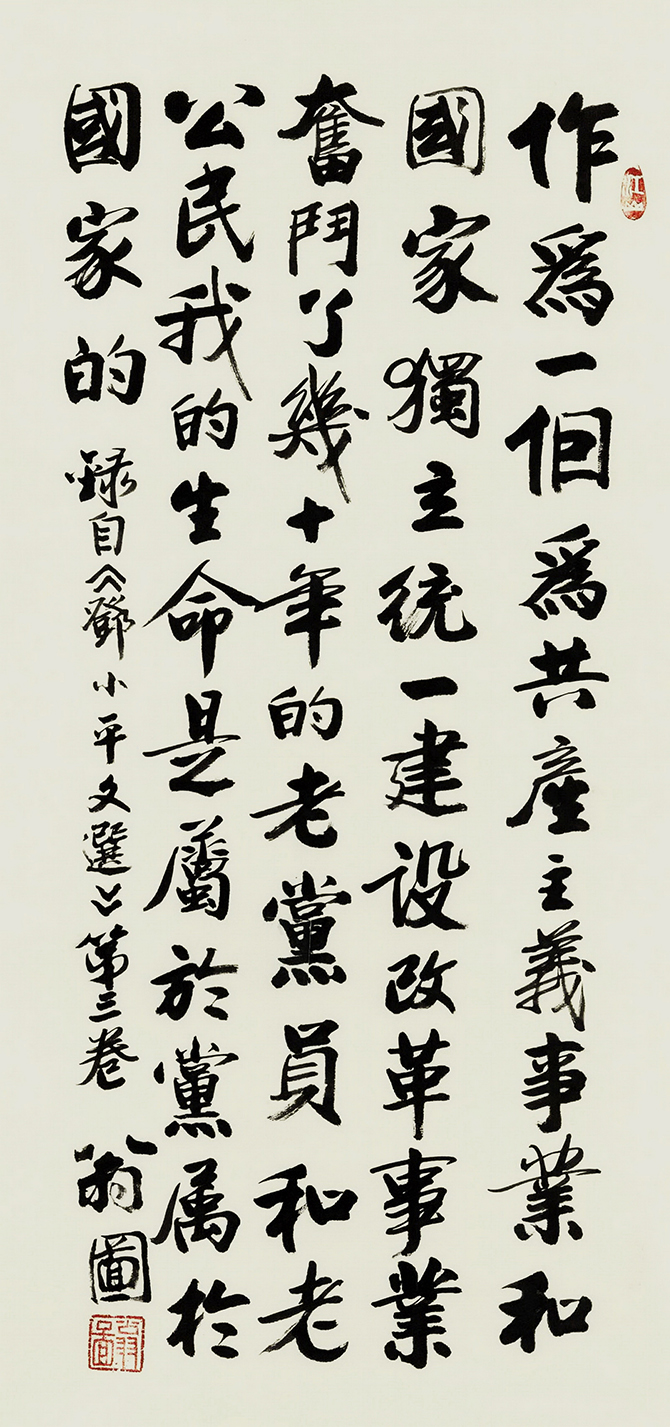 作爲一個爲共產主義事業和
國家獨立統一建設改革事業
奮鬥了幾十年的老黨員和老
公民我的生命是屬於黨属於
國家的
錄自《鄧小平文選》第三卷
翁圖